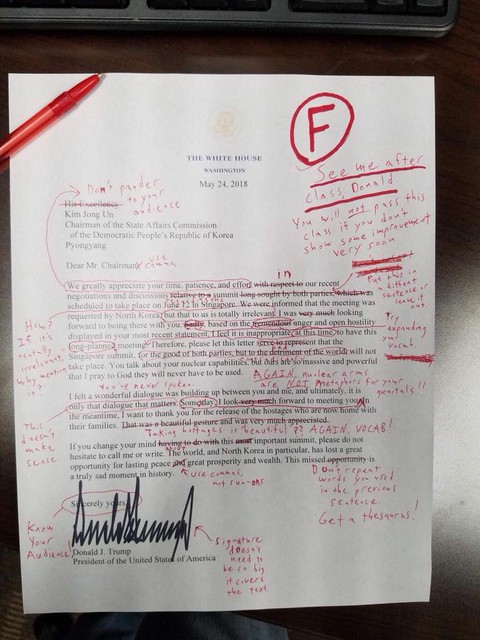 F
See me after
class, Donald.
You will not pass this
class if you don't
show some improvement
very soon
THE WHITE HOUSE
WASHINGTON
May 24, 2018
Don't pander
to your
audience
His Excellency
Kim Jong Un
Chairman of the State Affairs Commission
of the Democratic People's Republic of Korea
Pyongyang
Dear Mr. Chairman:
use
comma
in
We greatly appreciate your time, patience, and effort with respect to our recent
negotiations and discussions relative to a summit long sought by both parties, which was
scheduled to take place on June 12 in Singapore. We were informed that the meeting was
requested by North Korea, but that to us is totally irrelevant. I was very much looking
forward to being there with you. Sadly, based on the tremendous anger and open hostility
displayed in your most recent statement, I feel it is inappropriate, at this time, to have this
long-planned meeting. Therefore, please let this letter serve to represent that the
Singapore summit, for the good of both parties, but to the detriment of the world, will not
take place. You talk about your nuclear capabilities, but ours are so massive and powerful
that I pray to God they will never have to be used.
Put this in
a different
sentence or
leave it out
How?
If it's
totally
irrelevant,
why mention
it?
Try
expanding
your
vocab.
AGAIN, nuclear arms
are NOT metaphors for your
genitals!!
You've never spoken.
I felt a wonderful dialogue was building up between you and me, and ultimately, it is
only that dialogue that matters. Someday, I look very much forward to meeting you. In
the meantime, I want to thank you for the release of the hostages who are now home with
their families. That was a beautiful gesture and was very much appreciated.
This
doesn't
make
sense
Taking hostages is beautiful?? AGAIN, VOCAB!
If you change your mind having to do with this most important summit, please do not
hesitate to call me or write. The world, and North Korea in particular, has lost a great
opportunity for lasting peace and great prosperity and wealth. This missed opportunity is
a truly sad moment in history.
use commas,
not run-ons
Don't repeat
words you used
in the previous
sentence.
Get a thesaurus!
Sincerely yours,
Know
Your
Audience!
Donald J. Trump
President of the United States of America
Signature
doesn't
need to
be so big
it covers
the text